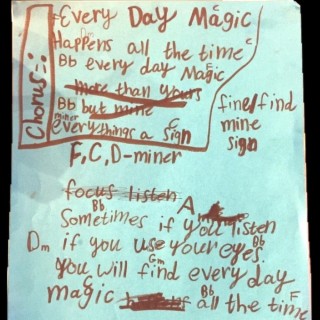 Chorus
F Every Day Magic C
Happens all the time C
Bb every day Magic F
more than yours
Bb but mine
miner everythings a sign F
fine/find
mine
sign
F, C, D-miner
focus listen A
Bb
Sometimes if you listen
Dm if you use your eyes. Bb
Gm
You will find every day
C
magic Bb all the time F